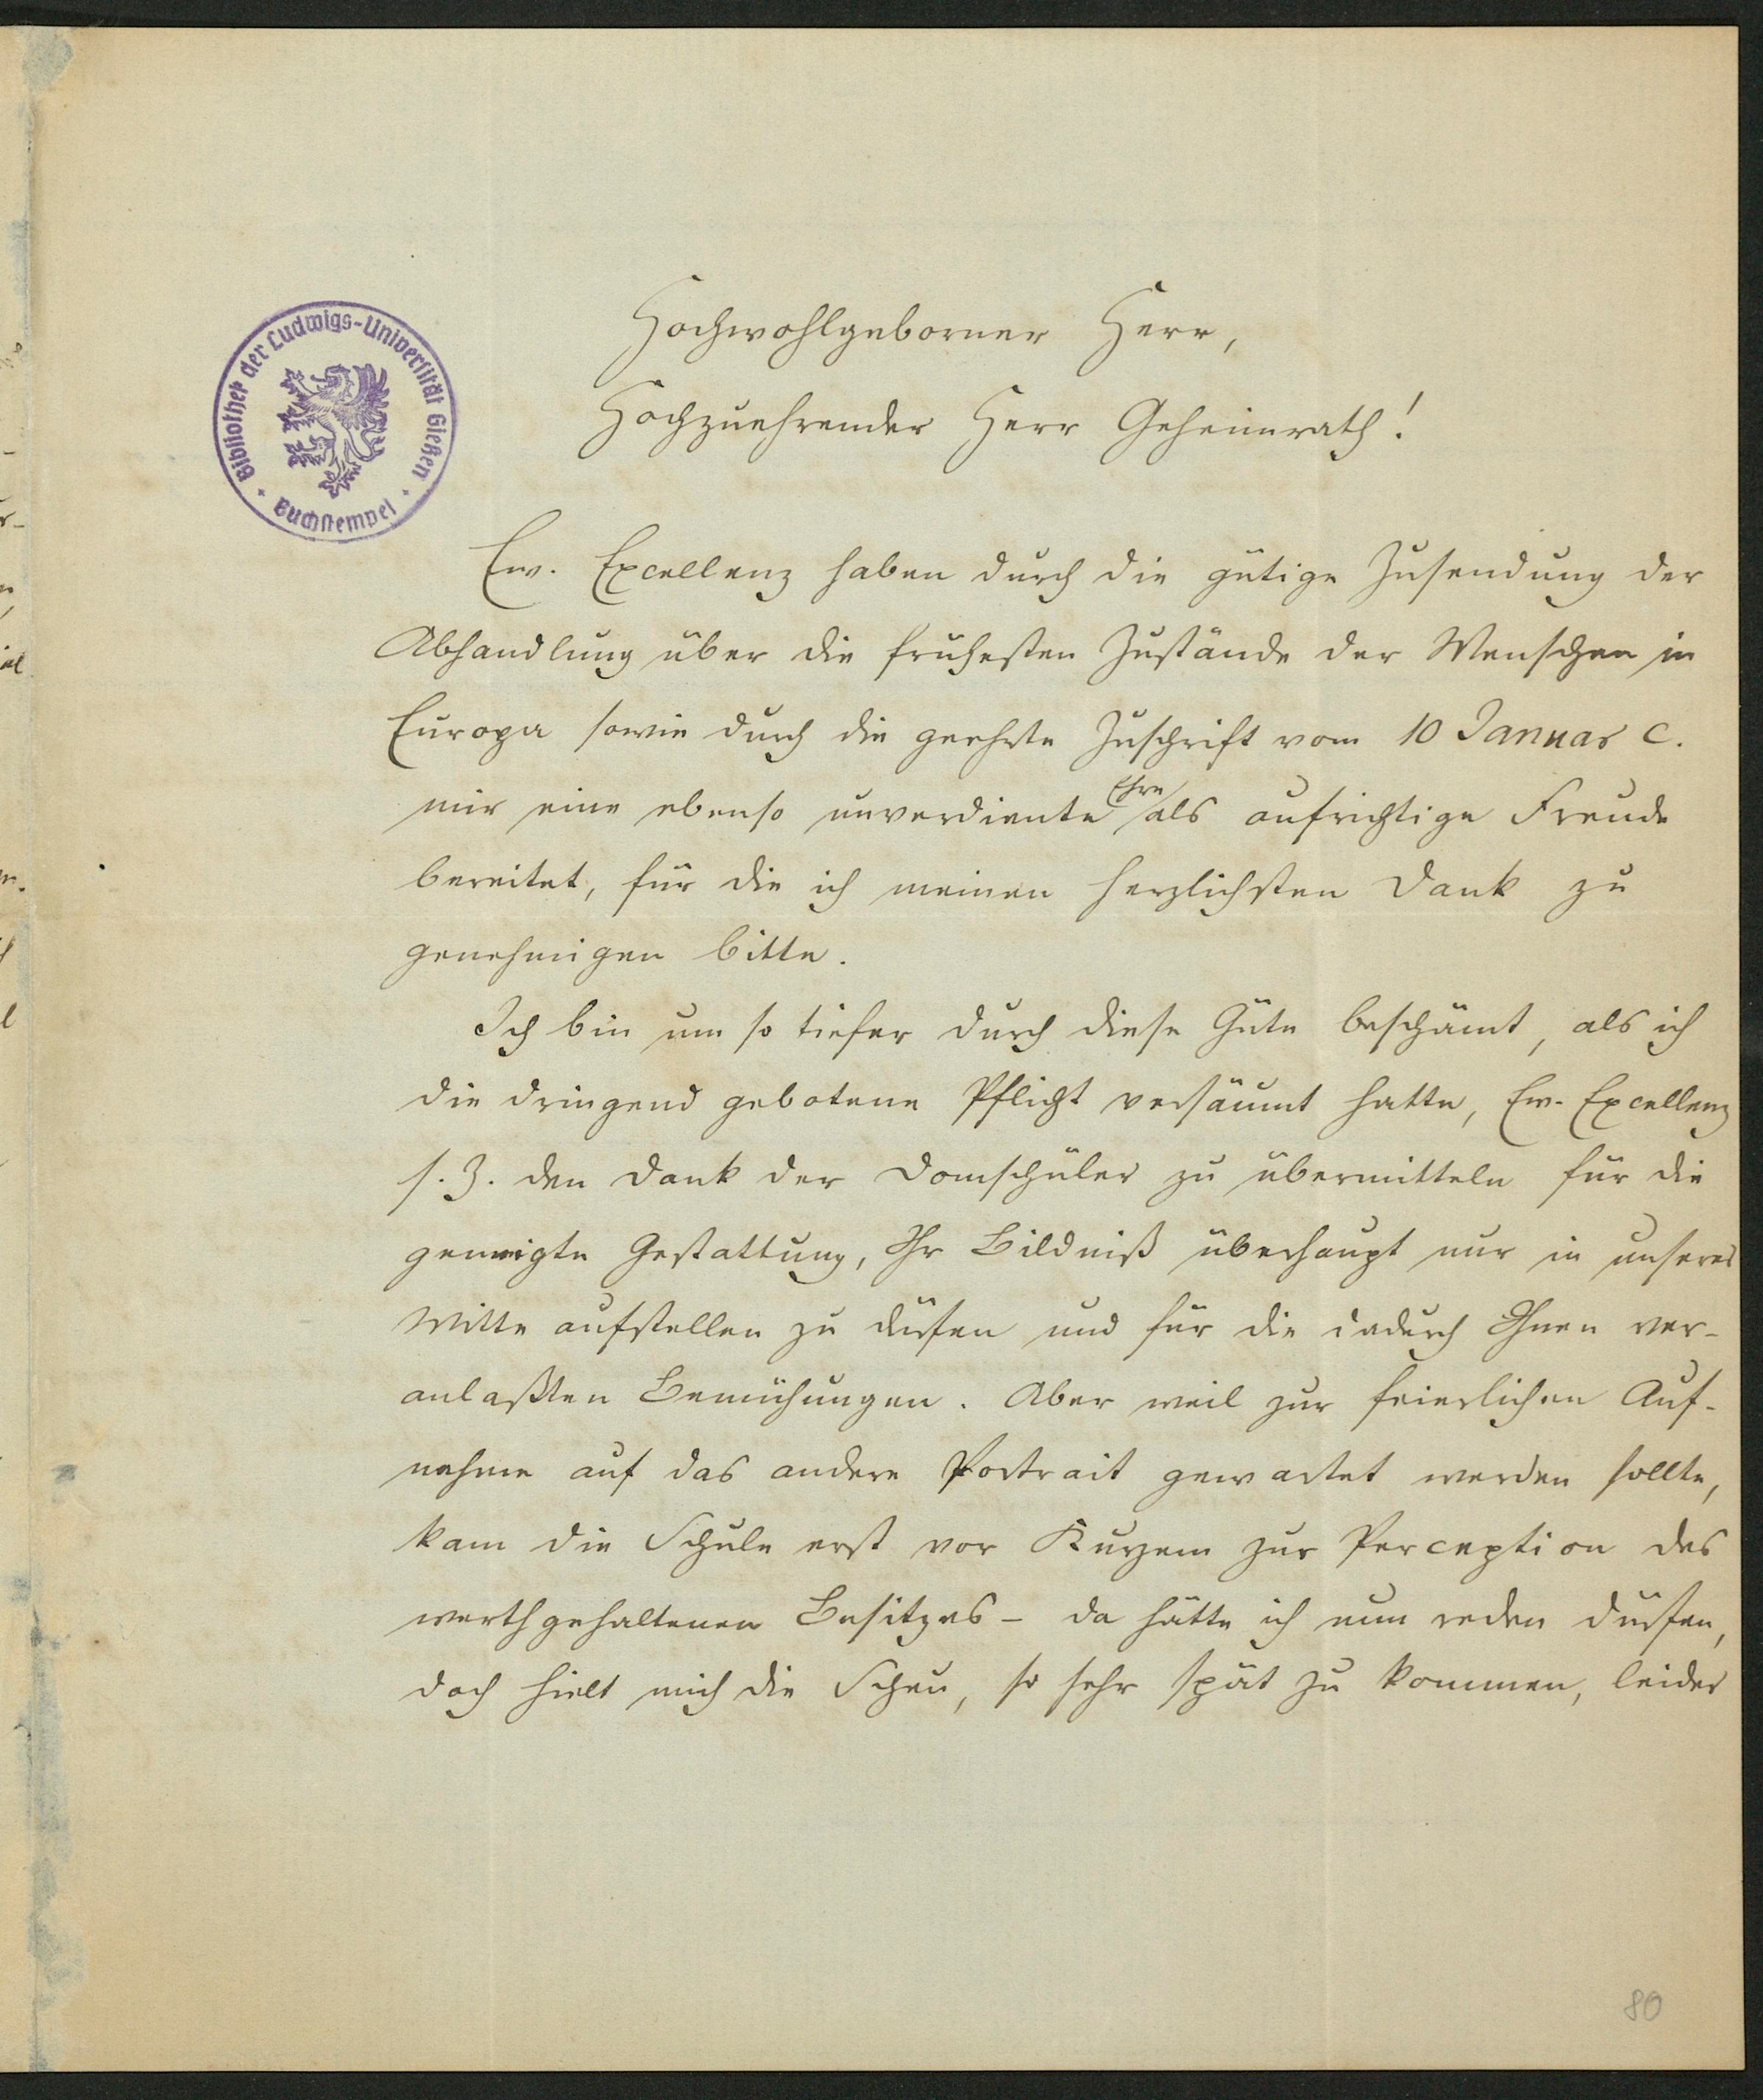 Bibliothek der Ludwigs-Universität Gießen
Buchstempel
Hochwohlgeborner Herr,
Hochzuehrender Herr Geheimrath!
Ew. Excellenz haben durch die gütige Zusendung der
Abhandlung über die frühesten Zustände der Menschen in
Europa sowie durch die geehrte Zuschrift vom 10 Januar c.
mir eine ebenso unverdiente Ehre als aufrichtige Freude
bereitet, für die ich meinen herzlichsten Dank zu
genehmigen bitte.
Ich bin um so tiefer durch diese Güte beschämt, als ich
die dringend gebotene Pflicht versäumt hatte, Ew. Excellenz
s. Z. den Dank der Domschüler zu übermitteln für die
geneigte Gestattung, Ihr Bildniß überhaupt nur in unserer
Mitte aufstellen zu dürfen und für die dadurch Ihnen ver-
anlaßten Bemühungen. Aber weil zur feierlichen Auf-
nahme auf das andere Portrait gewartet werden sollte,
kam die Schule erst vor Kurzem zur Perception des
werthgehaltenen Besitzes - da hätte ich nun reden dürfen,
doch hielt mich die Scheu, so sehr spät zu kommen, leider
80